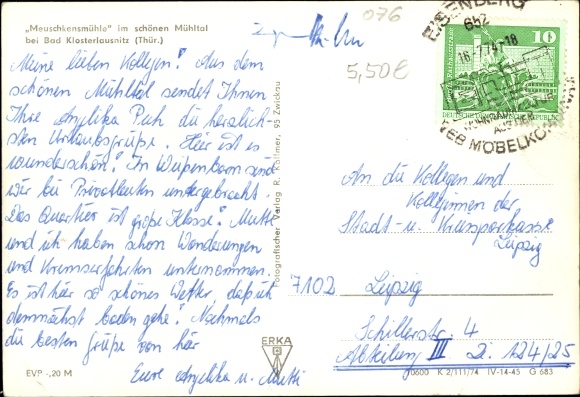 „Meuschkensmühle" im schönen Mühltal
bei Bad Klosterlausnitz (Thür.)
076
5,50€
Meine lieben Kollegen! Aus dem
schönen Mühltal sendet Ihnen
Ihre Angelika Puh die herzlich-
sten Urlaubsgrüße. Hier ist es
wunderschön! In Weißenborn sind
wir bei Privatleuten untergebracht.
Das Quartier ist große Klasse! Mutti
und ich haben schon Wanderungen
und Kremserfahrten unternommen.
Es ist hier so schönes Wetter, daß ich
demnächst baden gehe! Nochmals
die besten Grüße von hier
Eure Angelika u. Mutti
EVP -,20 M
Fotografischer Verlag R. Kallmer, 95 Zwickau
ERKA
EISENBERG
652
-18
10
DEUTSCHE DEMOKRATISCHE REPUBLIK
VEB MÖBELKOM
An die Kollegen und
Kolleginnen der
Stadt- u. Kreissparkasse
Leipzig
7102 Leipzig
Schillerstr. 4
Abteilung III Z. 124/25
K 2/111/74 IV-14-45 G 683